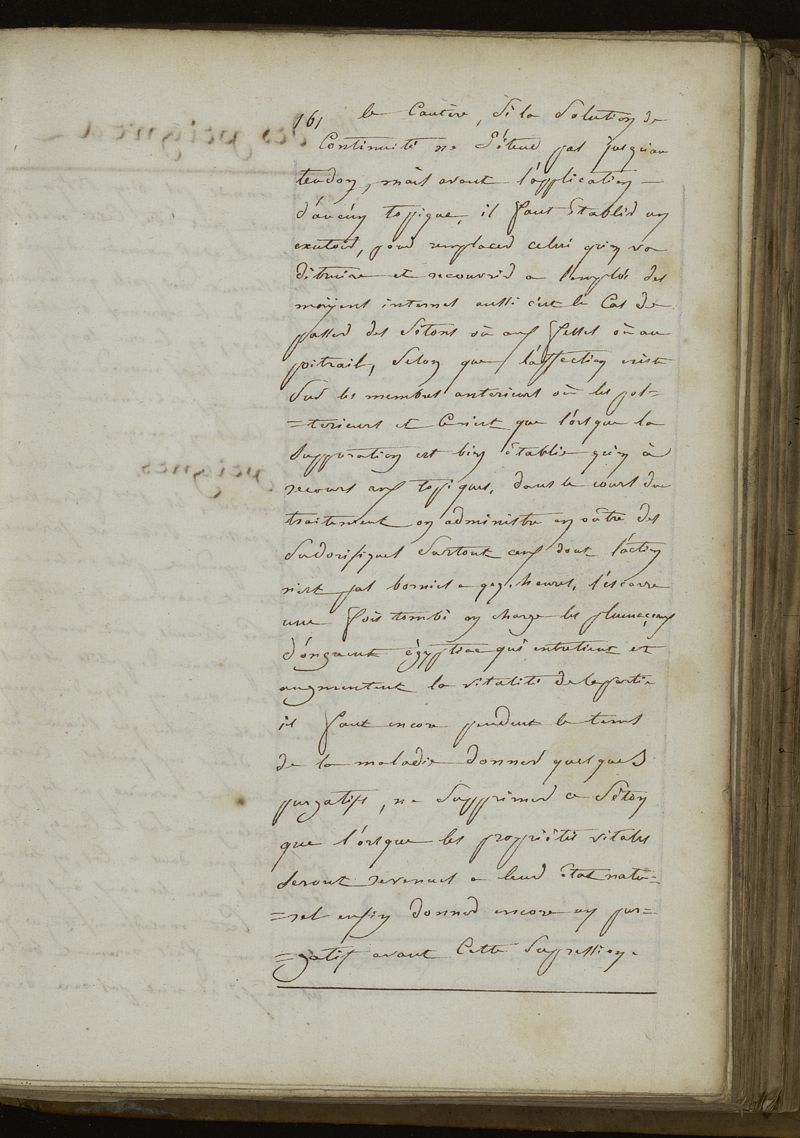 161 le Cautère, Si la Solution de
Continuité ne S'étend pas jusqu'au
tendon, mais avant l'application
d'aucun topique, il faut Etablir un
exutoir, pour remplacer celui qu'on va
détruire et recourrir a l'emploi des
moÿens internes aussi c'est le Cas de
passer des Sétons où aux fesses où au
poitrail, Selon que l'affection existe
Sur les membres anterieurs où les pos=
=terieurs et Ce n'est que l'orsque la
Suppuration est bien établie qu'on à
recours aux topiques, dans le court du
traitement on administre en outre des
Sudorifiques Surtout ceux dont l'action
n'est pas bornée a qqs. heures, l'escarre
une fois tombé on charge les plumaceaux
d'onguent égyptiac qui entretient et
augmentent la vitalité de la partie
il faut encore pendent le tems
de la maladie donner quelques
purgatifs, ne Supprimer ce Séton
que l'orsque les propriétés vitales
seront revenues a leur état natu=
=rel enfin donner encore un pur=
=gatif avant Cette Supression.
des peignes
peignes.